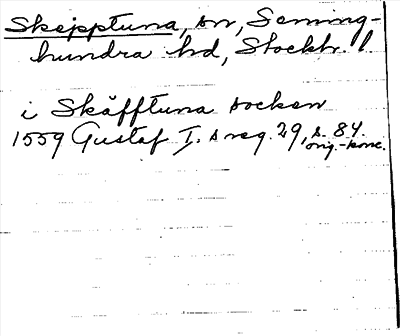 Skepptuna, sn, Seming-
hundra hd, Stockh. l
i Skäfftuna socken
1559 Gustaf I:s reg. 29, s. 84.
orig.-konc.